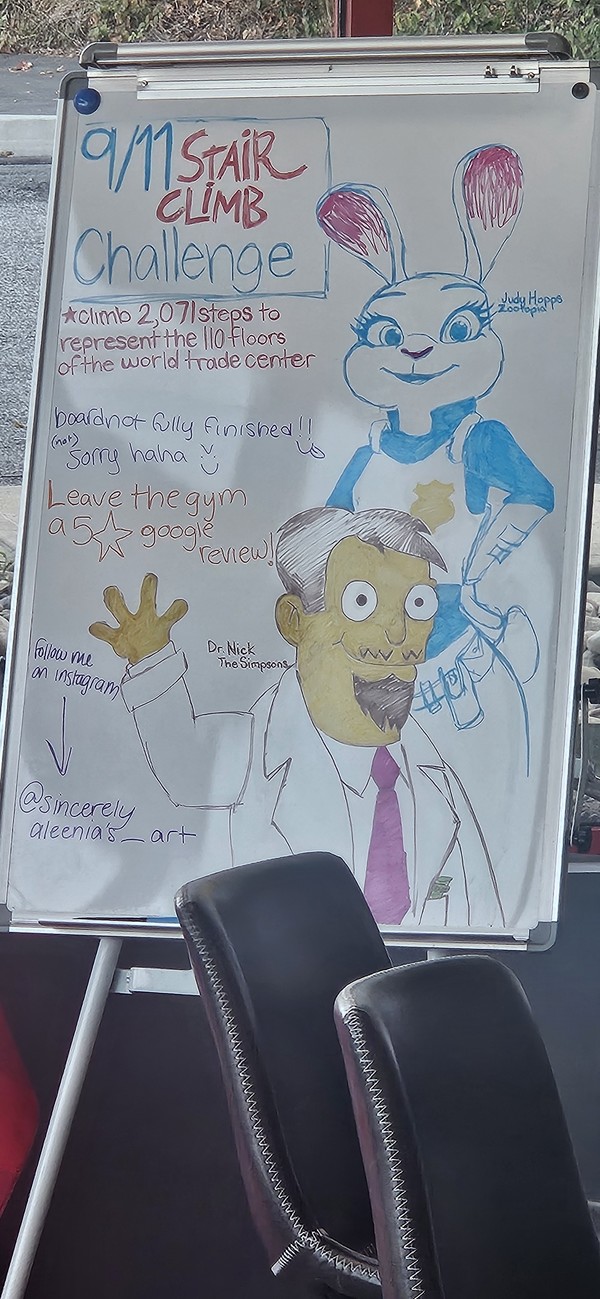 9/11 STAIR
CLIMB
Challenge
★climb 2,071 steps to
represent the 110 floors
of the world trade center
Judy Hopps
Zootopia
board not fully finished!!
(not)
Sorry haha
Leave the gym
a 5☆ google
review!
Dr. Nick
The Simpsons
Follow me
on instagram
@sincerely
aleenia's_art